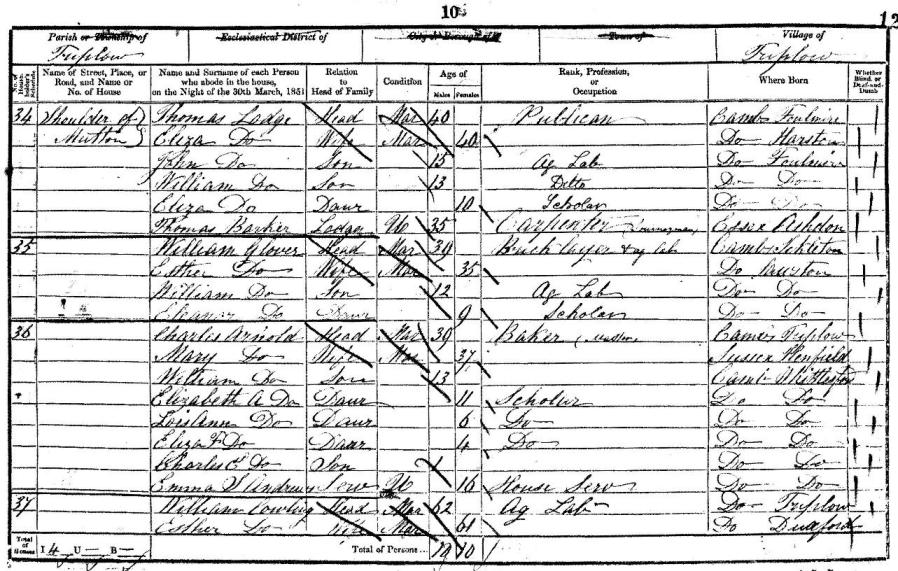 10
12
Parish or Township of Ecclesiastical District of City or Borough of Town of Village of
Triplow Triplow
No. of House-holder's Schedule Name of Street, Place, or Road, and Name or No. of House Name and Surname of each Person who abode in the house, on the Night of the 30th March, 1851 Relation to Head of Family Condition Age of Males Females Rank, Profession, or Occupation Where Born Whether Blind, or Deaf-and-Dumb
34 Shoulder of Thomas Lodge Head Mar 40 Publican Camb Foulmire
Mutton Eliza Do Wife Mar 40 Do Harston
John Do Son 15 Ag Lab Do Foulmire
William Do Son 13 Ditto Do Do
Eliza Do Daur 10 Scholar Do Do
Thomas Barker Lodger U 35 Carpenter Essex Ashdon
35 William Glover Head Mar 39 Bricklayer & ag lab Camb
Esther Do Wife Mar 35 Do
William Do Son 12 Ag Lab Do Do
Eleanor Do Daur 9 Scholar Do Do
36 Charles Arnold Head Mar 39 Baker Triplow
Mary Do Wife Mar 37 Sussex Henfield
William Do Son 13 Camb
Elizabeth A Do Daur 11 Scholar Do Do
Do Daur 6 Do Do Do
Eliza F Do Daur 4 Do Do Do
Charles Do Son 1 Do Do
Emma S Andrews Serv U 16 House Serv Do Do
37 William Cowling Head Mar 62 Ag Lab Do Triplow
Esther Do Wife Mar 61 Do Duxford
Total of Houses I 4 U — B — Total of Persons 19 10